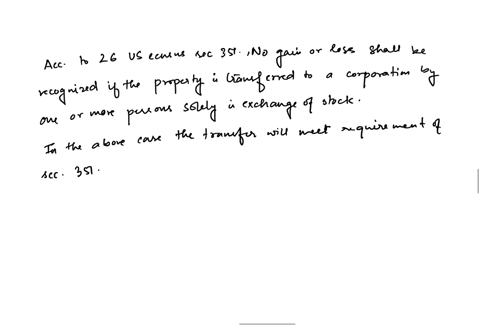 Acc. to 26 US sec 351., No gain or loss shall be
recognized if the property is transferred to a corporation by
one or more persons solely in exchange of stock.
In the above case the transfer will meet requirement of
sec. 351.